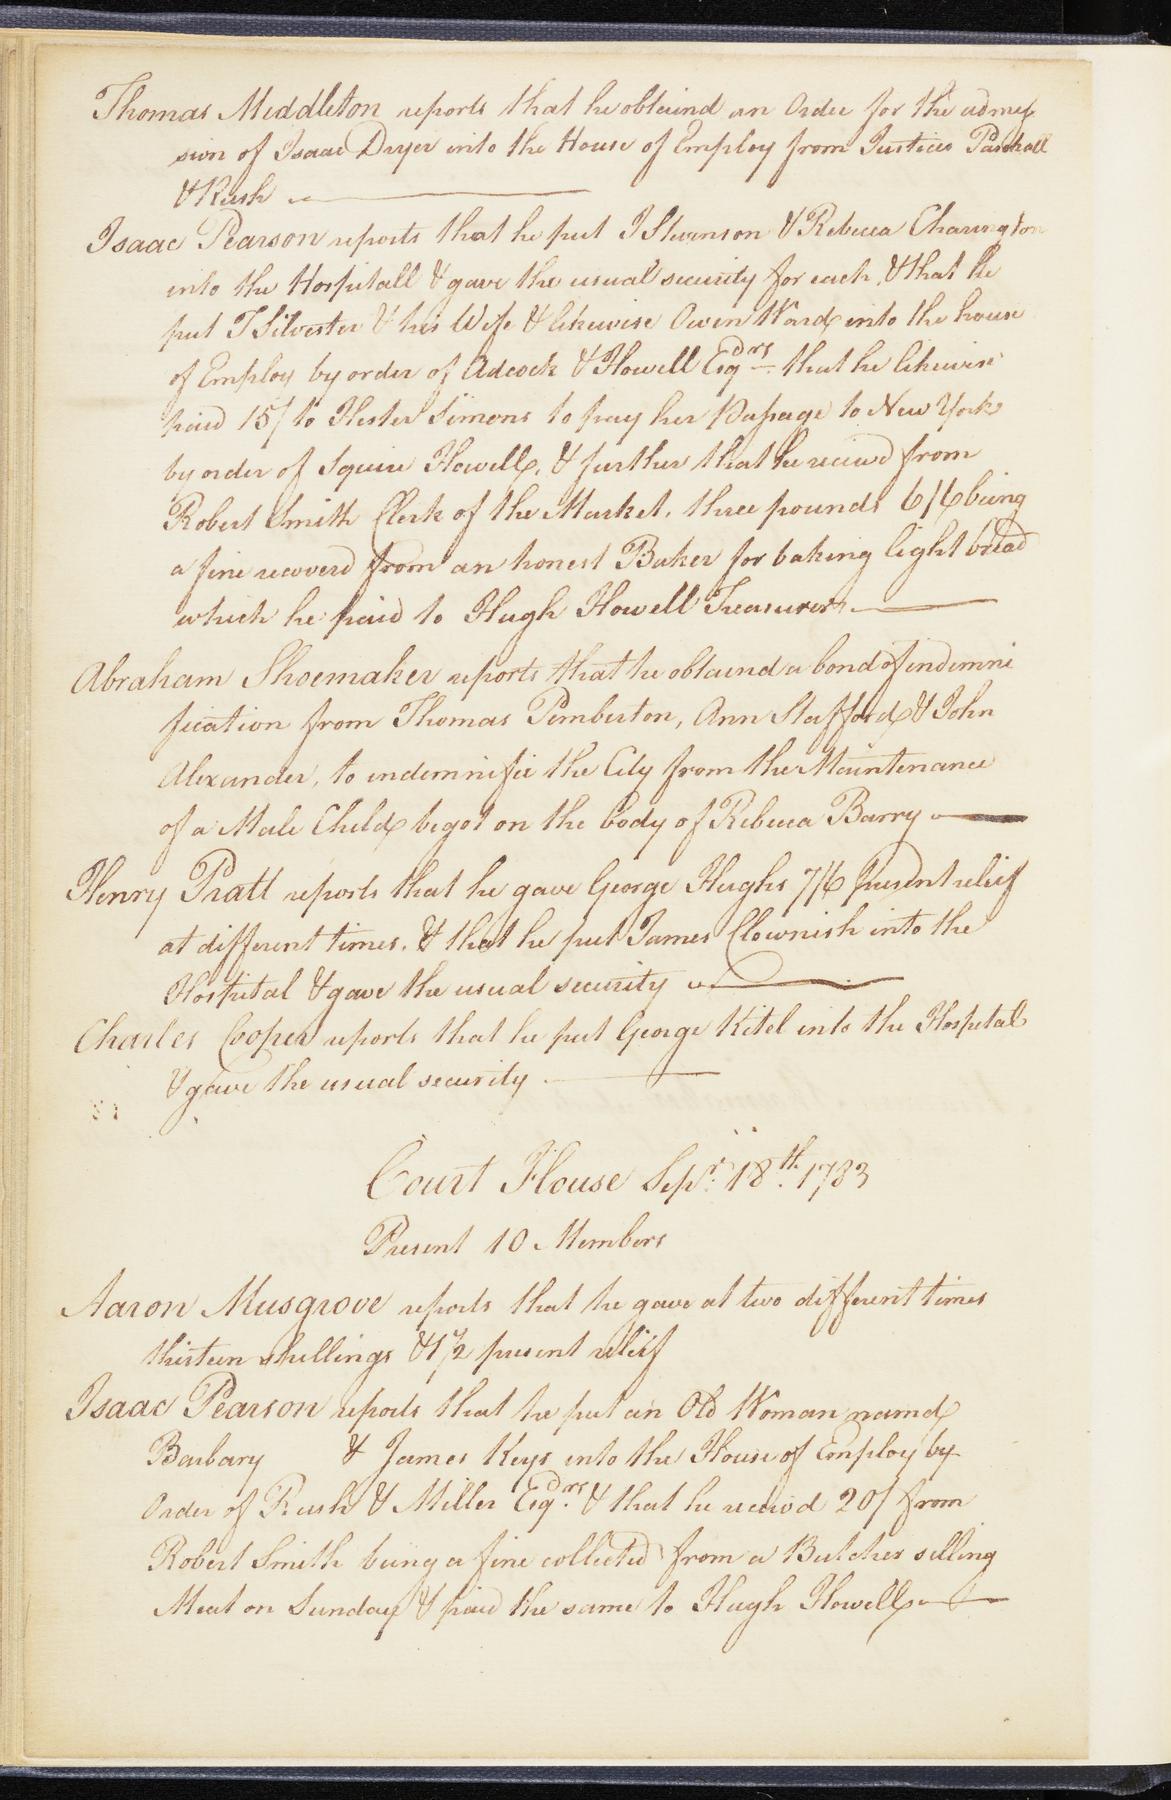 Thomas Middleton reports that he obtaind an Order for the admis
sion of Isaac Dryer into the House of Employ from Justices Paschall
& Rush
Isaac Pearson reports that he put J Stevenson & Rebecca Charington
into the Hospitall & gave the usual security for each, & that he
put T Silvester & his Wife & likewise Owen Ward into the house
of Employ by order of Adcock & Howell Esqrs that he likewise
paid 15/ to Hester Simons to pay her Passage to New York
by order of Squire Howell, & further that he receivd from
Robert Smith Clerk of the Market, three pounds 6/6 being
a fine recoverd from an honest Baker for baking light bread
which he paid to Hugh Howell Treasurer
Abraham Shoemaker reports that he obtaind a bond of indemni
fication from Thomas Pemberton, Ann Stafford & John
Alexander, to indemnifie the City from the Maintenance
of a Male Child begot on the body of Rebecca Barry
Henry Pratt reports that he gave George Hughs 7/6 present relief
at different times, & that he put James Clownish into the
Hospital & gave the usual security
Charles Cooper reports that he put George Kitel into the Hospital
& gave the usual security
Court House Sepr. 18th. 1783
Present 10 Members
Aaron Musgrove reports that he gave at two different times
thirteen shillings & 1/2 present relief
Isaac Pearson reports that he put an Old Woman namd
Barbary & James Keys into the House of Employ by
Order of Rush & Miller Esqrs. & that he receivd 20/ from
Robert Smith being a fine collected from a Butcher selling
Meat on Sunday & paid the same to Hugh Howell